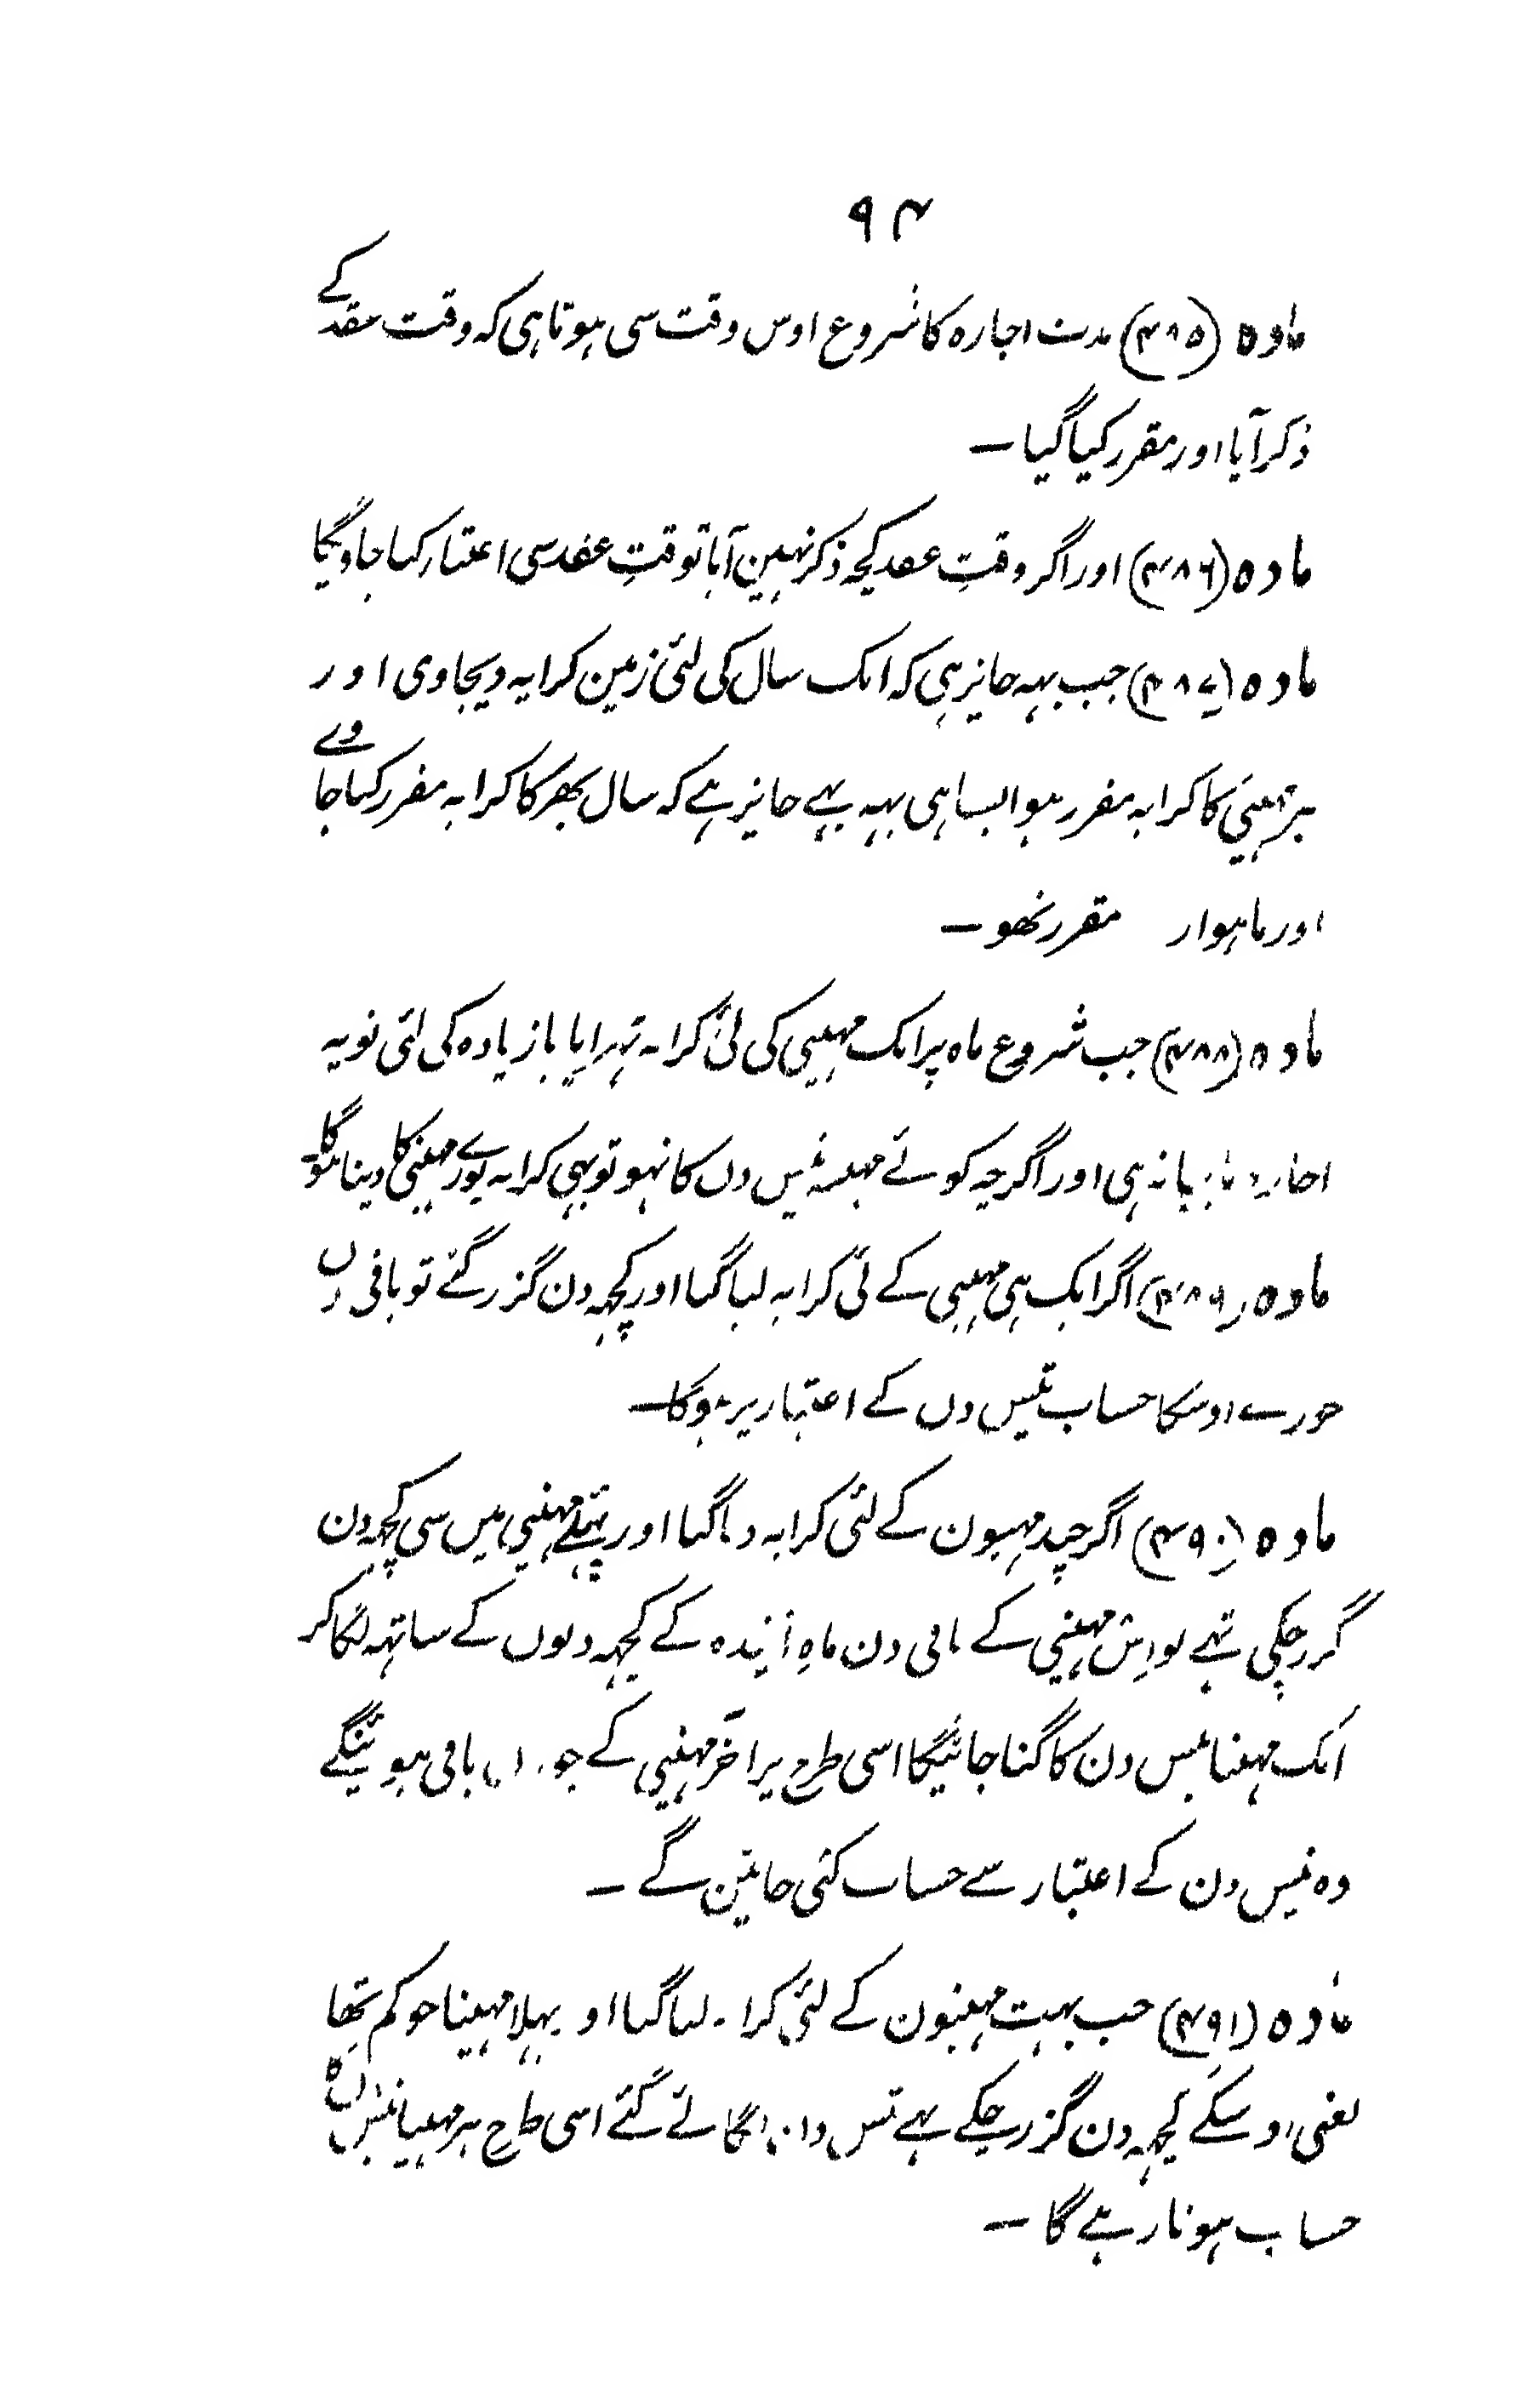 ۹۴
مادہ (۴۸۵) مدت اجارہ کا شروع اوس وقت سی ہوتا ہی کہ وقت عقد کے
ذکر آیا اور مقرر کیا گیا ـ
مادہ (۴۸۶) اور اگر وقتِ عقد کچہ ذکر نہین آیا تو وقتِ عقد سی اعتبار کیا جاویگا
مادہ (۴۸۷) جب یہہ جایز ہی کہ ایک سال کی لئی زمین کرایہ دیجاوی اور
ہر مہینی کا کرایہ مقرر ہو ایسا ہی یہہ بہے جایز ہے کہ سال بھر کا کرایہ مقرر کیا جاوے
اور ماہوار مقرر نہو ـ
مادہ (۴۸۸) جب شروع ماہ پر ایک مہینی کی لئی کرایہ ٹہرایا یا زیادہ کی لئی تو یہ
اجارہ ماہیانہ ہی اور اگرچہ کوئے مہینہ تیس دن کا نہو تو بہی کرایہ پورے مہینی کا دینا ہوگا
مادہ (۴۸۹) اگر ایک ہی مہینی کے لئی کرایہ لیا گیا اور کچہہ دن گزر گئے تو باقی دن
جو رہے اوسکا حساب تیس دن کے اعتبار پر ہوگا ـ
مادہ (۴۹۰) اگر چند مہینون کے لئی کرایہ دیا گیا اور پہلے مہینی میں سی کچہہ دن
گزر چکی تہے تو اس مہینی کے باقی دن ماہِ آیندہ کے کچہہ دنوں کے ساتہہ لگا کر
ایک مہینا تیس دن کا گنا جائیگا اسی طرح پر آخر مہینی کے جو دن باقی ہوئینگے
وہ تیس دن کے اعتبار سے حساب کئی جائین گے ـ
مادہ (۴۹۱) جب بہت مہینون کے لئی کرایہ لیا گیا اور پہلا مہینا جو کم تھا
یعنی اوسکے کچہہ دن گزر چکے تہے تیس دن لگائے گئے اسی طرح ہر مہینا تیس دن کا
حساب ہوتا رہے گا ـ